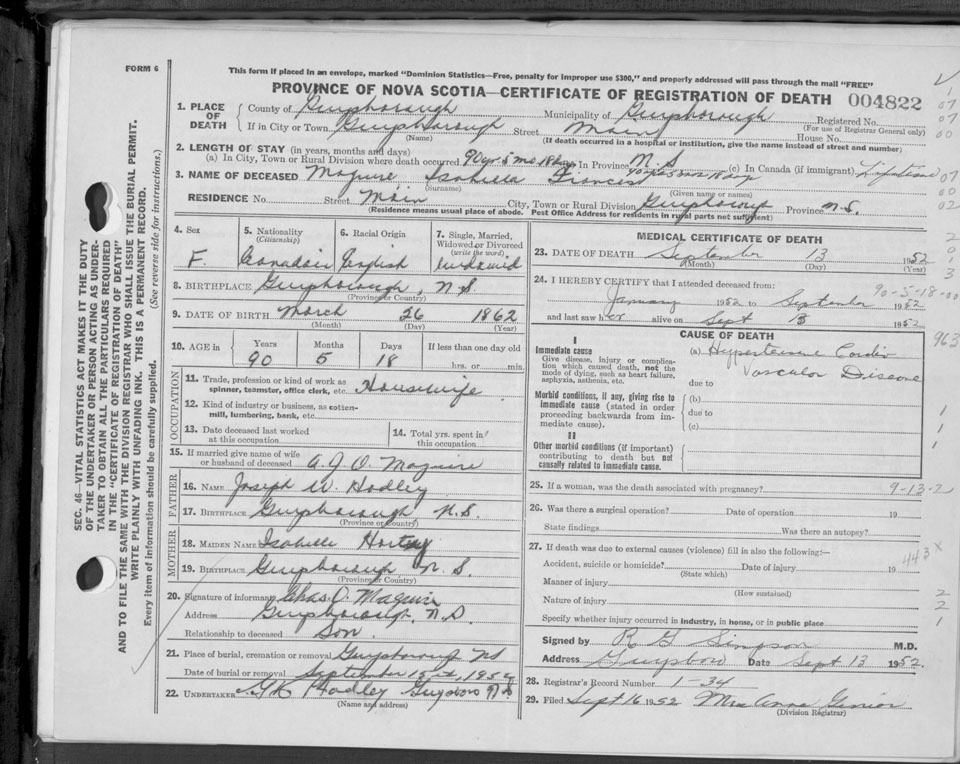 FORM 6
This form if placed in an envelope, marked "Dominion Statistics—Free, penalty for improper use $300," and properly addressed will pass through the mail "FREE"
PROVINCE OF NOVA SCOTIA—CERTIFICATE OF REGISTRATION OF DEATH 004822
1. PLACE OF DEATH
County of Guysborough Municipality of Guysborough Registered No.
(For use of Registrar General only)
If in City or Town Guysborough Street Main House No.
(Name) (If death occurred in a hospital or institution, give the name instead of street and number)
2. LENGTH OF STAY (in years, months and days)
(a) In City, Town or Rural Division where death occurred 90 yrs 5 mo 18 days In Province N.S. 90 yrs 5 mos 18 days (c) In Canada (if immigrant) Lifetime
3. NAME OF DECEASED Maguire Isabella Frances
(Surname) (Given name or names)
RESIDENCE No. Street Main City, Town or Rural Division Guysborough Province N.S.
(Residence means usual place of abode. Post Office Address for residents in rural parts not sufficient)
4. Sex F.
5. Nationality (Citizenship) Canadian
6. Racial Origin English
7. Single, Married, Widowed or Divorced (write the word) Widowed
8. BIRTHPLACE Guysborough, N.S
(Province or Country)
9. DATE OF BIRTH March 26 1862
(Month) (Day) (Year)
10. AGE in Years Months Days If less than one day old
90 5 18 hrs. or min.
OCCUPATION
11. Trade, profession or kind of work as spinner, teamster, office clerk, etc. Housewife
12. Kind of industry or business, as cotten-mill, lumbering, bank, etc.
13. Date deceased last worked at this occupation
14. Total yrs. spent in this occupation
15. If married give name of wife or husband of deceased A.J.O. Maguire
FATHER
16. NAME Joseph W. Hadley
17. BIRTHPLACE Guysborough N.S.
(Province or Country)
MOTHER
18. MAIDEN NAME Isabelle
19. BIRTHPLACE Guysborough N.S.
(Province or Country)
20. Signature of informant Chas. O. Maguire
Address Guysborough, N.S
Relationship to deceased Son
21. Place of burial, cremation or removal Guysborough NS
Date of burial or removal September 15th, 1952
22. UNDERTAKER Hadley Guysboro N.S
(Name and address)
MEDICAL CERTIFICATE OF DEATH
23. DATE OF DEATH September 13 1952
(Month) (Day) (Year)
24. I HEREBY CERTIFY that I attended deceased from: 90-5-18-00
January 1952 to September 1952
and last saw her alive on Sept 13 1952
CAUSE OF DEATH
I
Immediate cause
Give disease, injury or complication which caused death, not the mode of dying, such as heart failure, asphyxia, asthenia, etc.
(a) Hypertensive Cardio Vascular Disease
due to
Morbid conditions, if any, giving rise to immediate cause (stated in order proceeding backwards from immediate cause).
(b)
due to
(c)
II
Other morbid conditions (if important) contributing to death but not causally related to immediate cause.
25. If a woman, was the death associated with pregnancy? 9-13-2
26. Was there a surgical operation? Date of operation 19
State findings Was there an autopsy?
27. If death was due to external causes (violence) fill in also the following:— 443 x
Accident, suicide or homicide? Date of injury 19
(State which)
Manner of injury
(How sustained)
Nature of injury
Specify whether injury occurred in industry, in home, or in public place
Signed by R G Simpson M.D.
Address Guysboro Date Sept 13 1952.
28. Registrar's Record Number 1-34
29. Filed Sept 16 1952 Mrs Anne
(Division Registrar)
SEC. 46—VITAL STATISTICS ACT MAKES IT THE DUTY
OF THE UNDERTAKER OR PERSON ACTING AS UNDER-
TAKER TO OBTAIN ALL THE PARTICULARS REQUIRED
IN THE "CERTIFICATE OF REGISTRATION OF DEATH"
AND TO FILE THE SAME WITH THE DIVISION REGISTRAR WHO SHALL ISSUE THE BURIAL PERMIT.
WRITE PLAINLY WITH UNFADING INK. THIS IS A PERMANENT RECORD.
Every item of information should be carefully supplied. (See reverse side for instructions.)
1
07
07
00
07
00
02
2
0
1
3
963
1
1
1
2
2
1